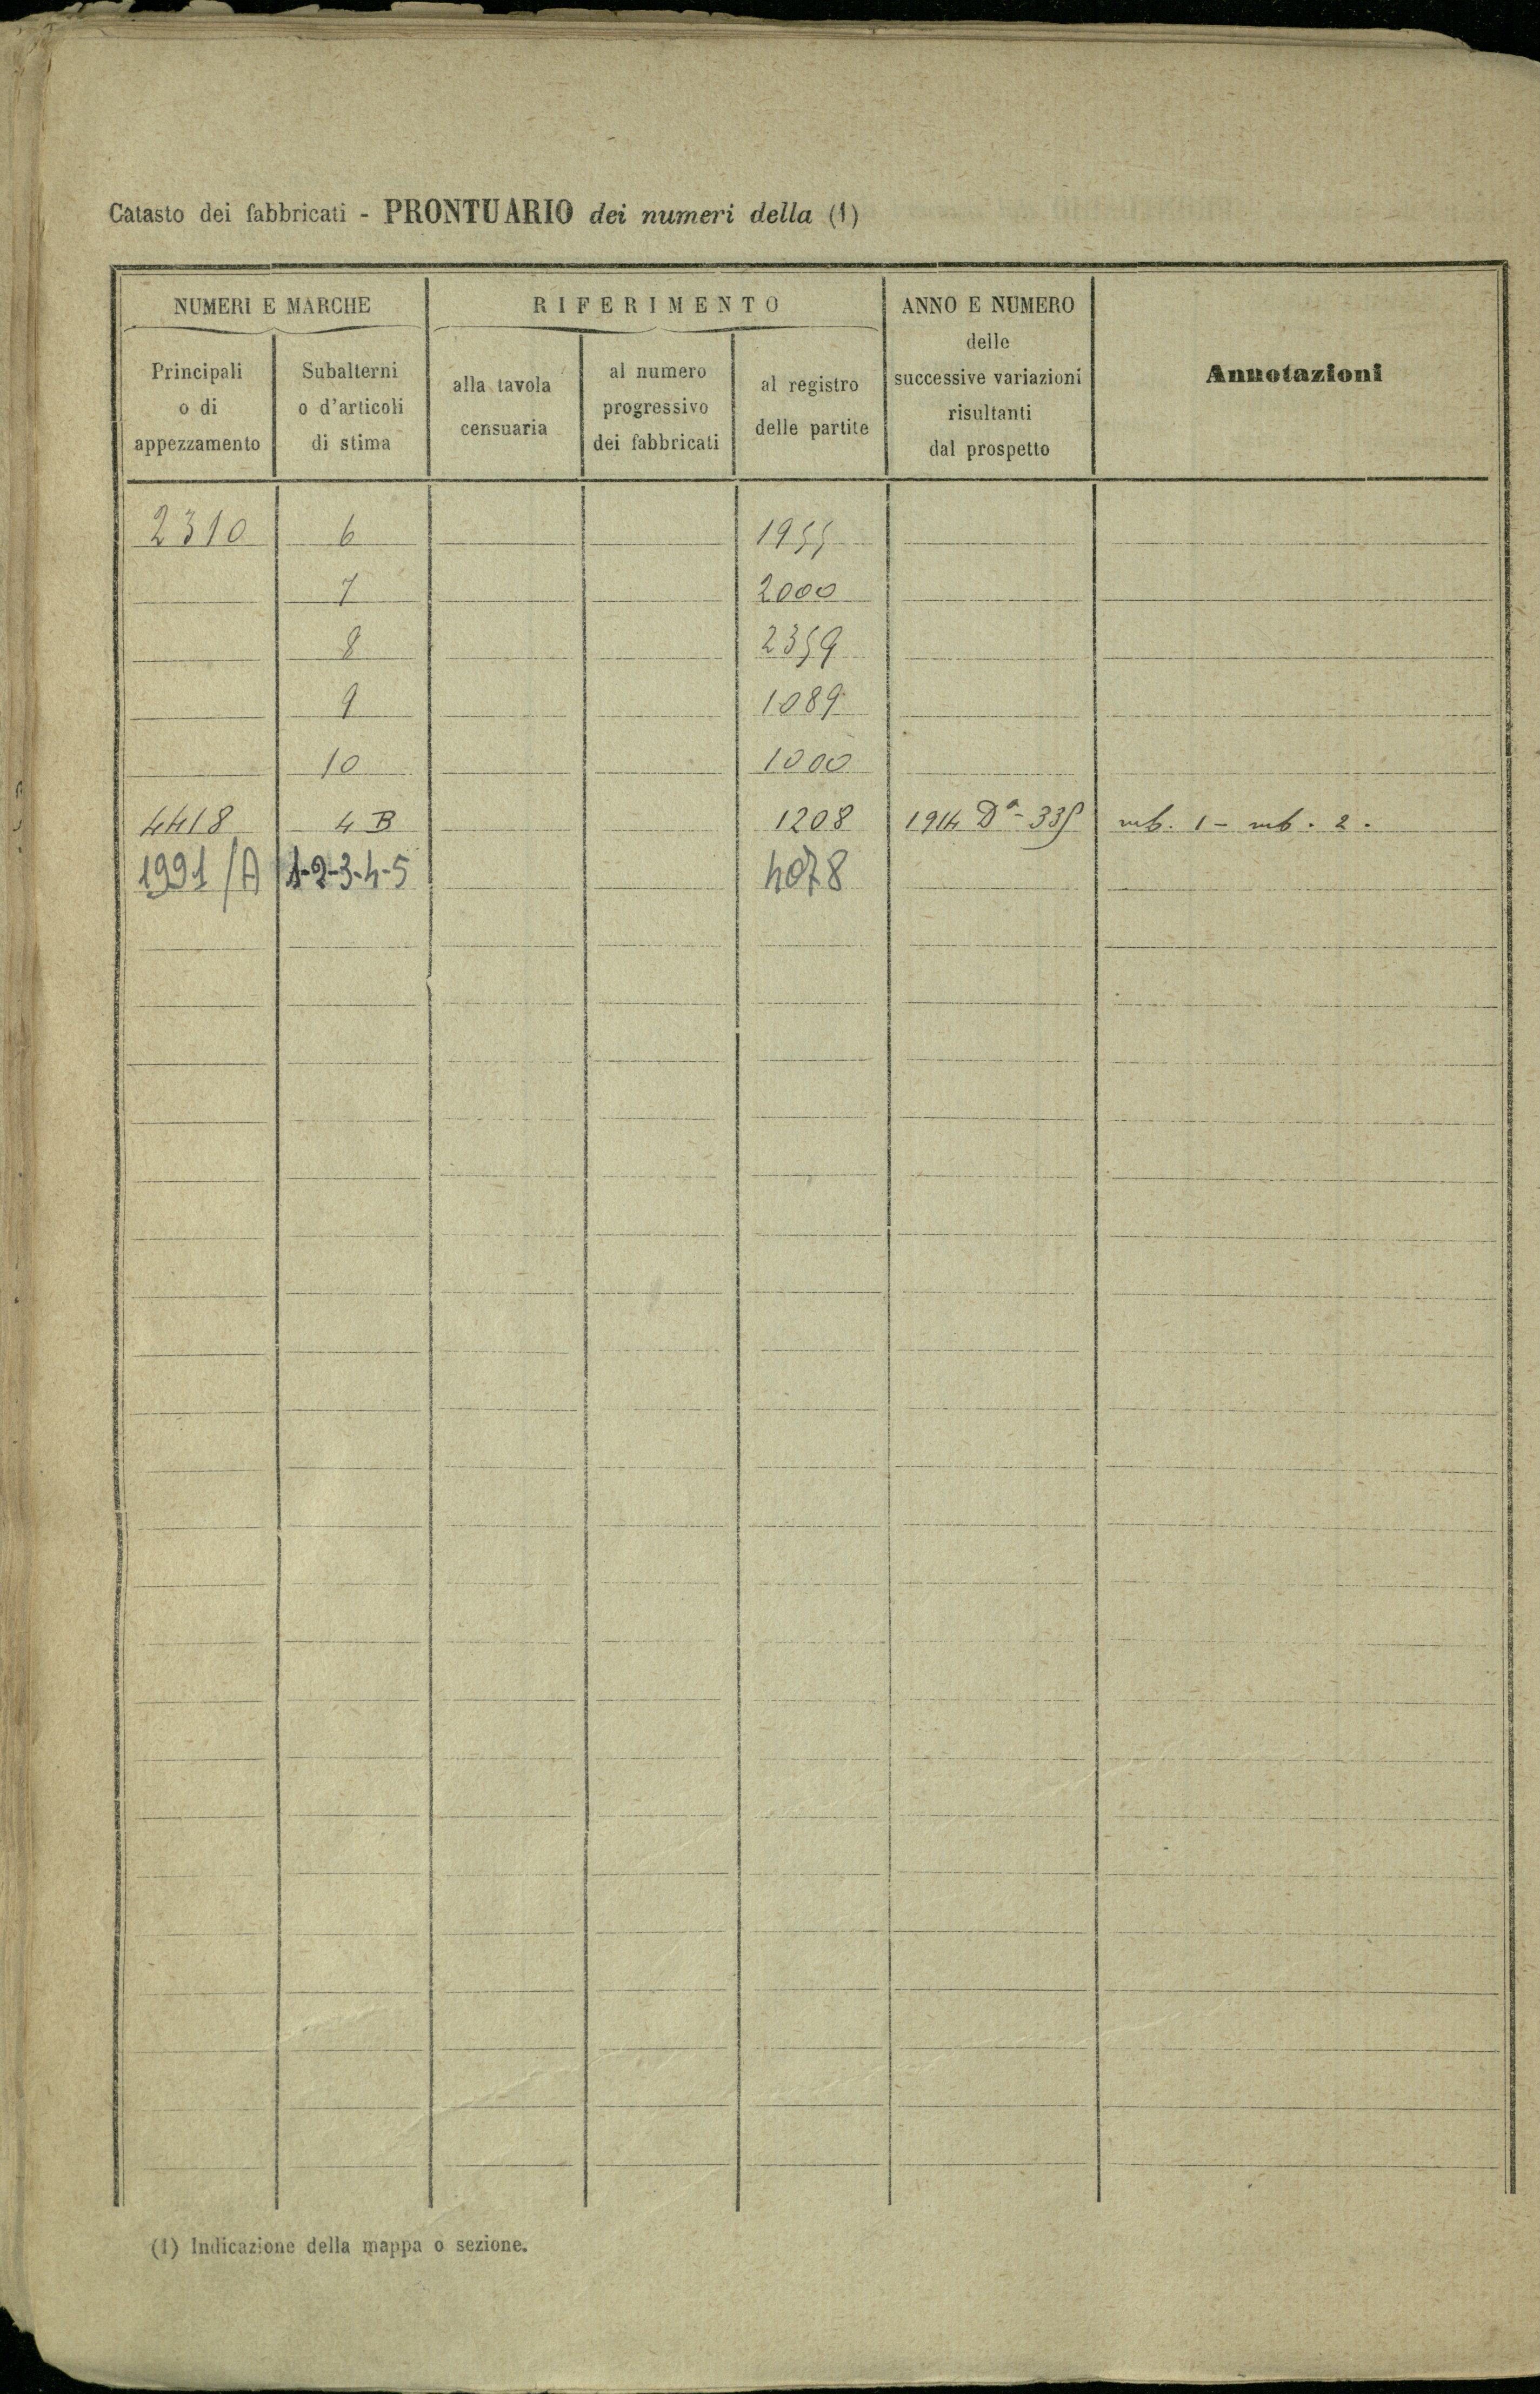 Catasto dei fabbricati - PRONTUARIO dei numeri della (1)
NUMERI E MARCHE
RIFERIMENTO
ANNO E NUMERO
delle
successive variazioni
risultanti
dal prospetto
Annotazioni
Principali
o di
appezzamento
Subalterni
o d'articoli
di stima
alla tavola
censuaria
al numero
progressivo
dei fabbricati
al registro
delle partite
2310 6 1955
7 2000
8 2359
9 1089
10 1000
4418 4 B 1208 1914 Dª - 335 sub. 1 - sub. 2.
1991/A 1-2-3-4-5 4078
(1) Indicazione della mappa o sezione.